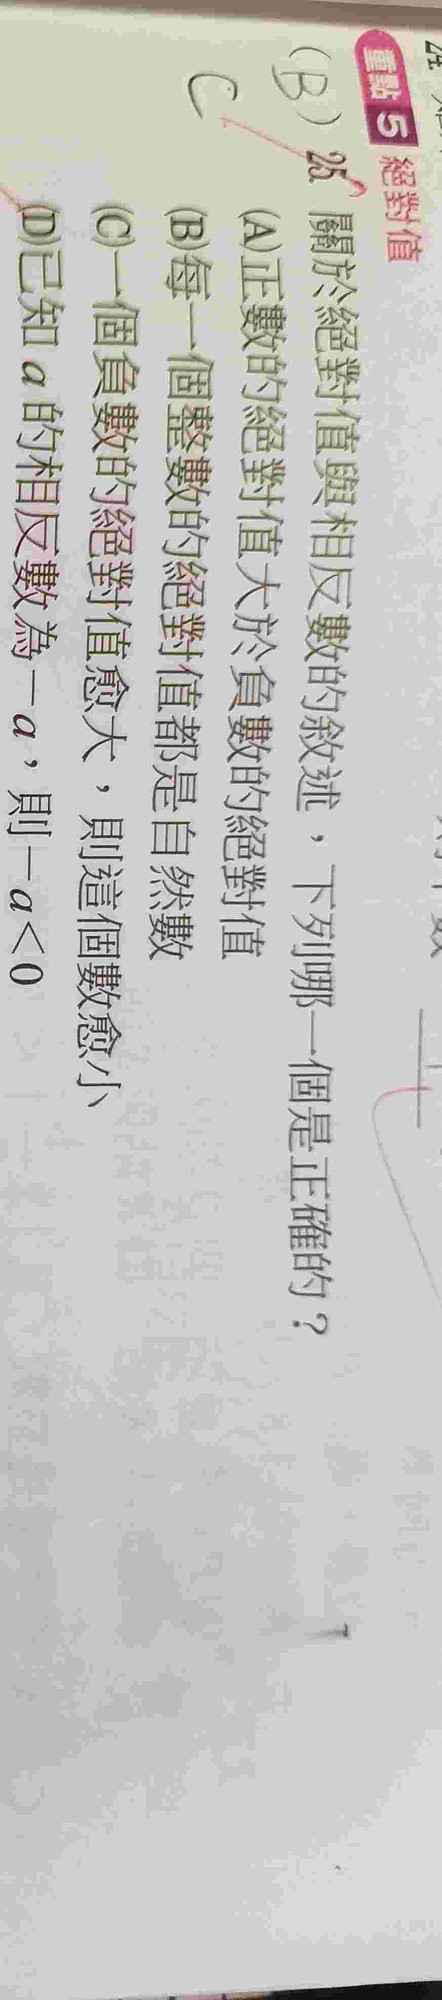 重點5 絕對值
(B) 25. 關於絕對值與相反數的敘述，下列哪一個是正確的？
C
(A)正數的絕對值大於負數的絕對值
(B)每一個整數的絕對值都是自然數
(C)一個負數的絕對值愈大，則這個數愈小
(D)已知 a 的相反數為－a，則－a＜0